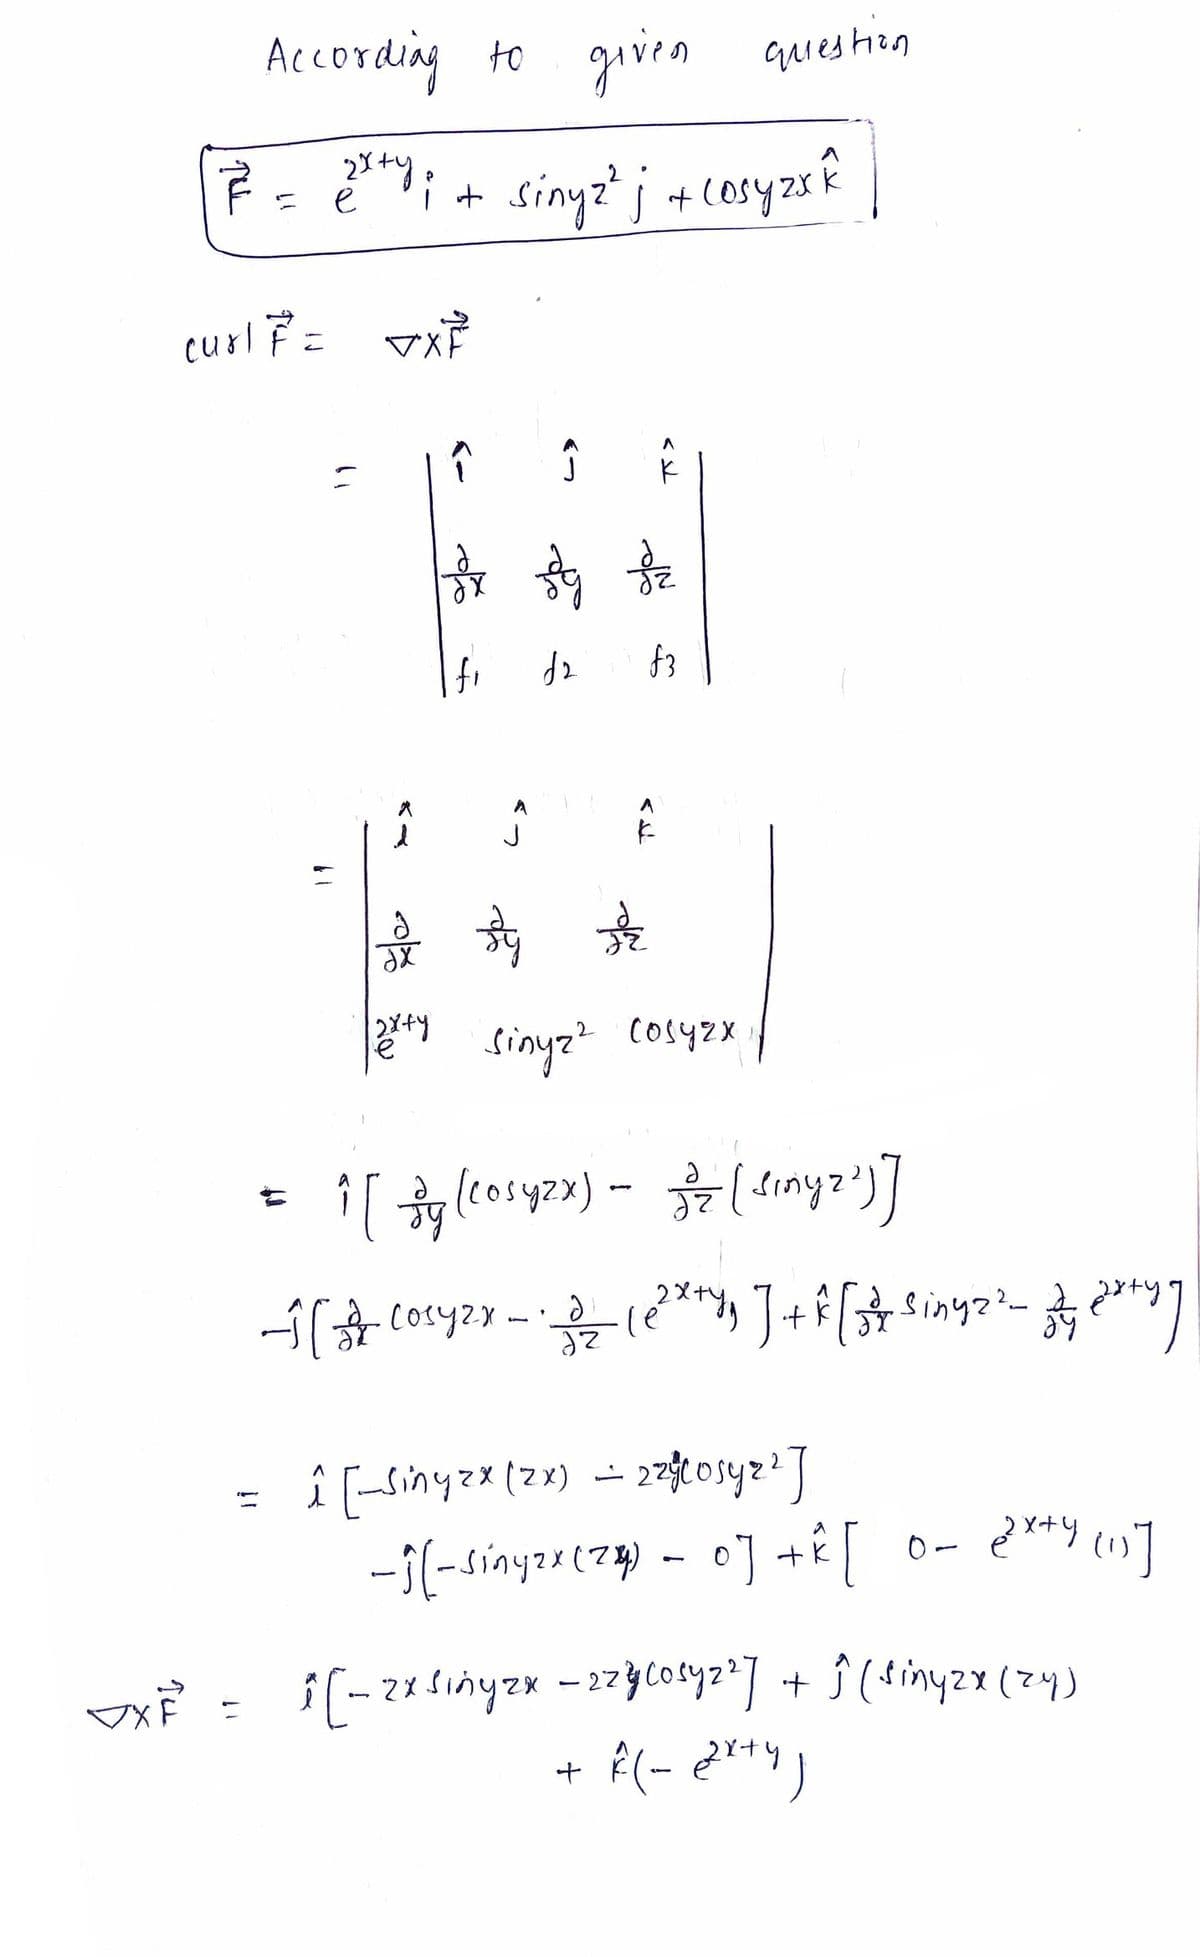 According to given question
F⃗ = e^{2x+y} i + sinyz² j + cosyzx k̂
curl F⃗ = ∇×F⃗
= | î ĵ k̂ |
| ∂/∂x ∂/∂y ∂/∂z |
| f1 f2 f3 |
= | î ĵ k̂ |
| ∂/∂x ∂/∂y ∂/∂z |
| e^{2x+y} sinyz² cosyzx |
= î [ ∂/∂y (cosyzx) − ∂/∂z (sinyz²)]
−ĵ [ ∂/∂x cosyzx − ∂/∂z (e^{2x+y}) ] + k̂ [ ∂/∂x sinyz² − ∂/∂y e^{2x+y} ]
= î [−sinyzx (zx) − 2zycosyz²]
−ĵ [−sinyzx (zy) − 0] + k̂ [ 0 − e^{2x+y} (1)]
∇×F⃗ = î [− zx sinyzx − 2zycosyz²] + ĵ (sinyzx (zy)
+ k̂ (− e^{2x+y})